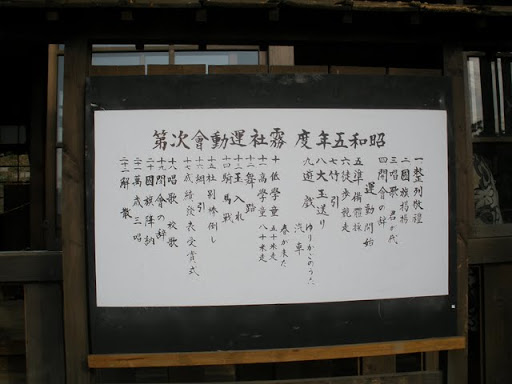 昭和五年度 霧社運動會次第
一 整列敬禮
二 國旗掲揚
三 唱歌 君が代
四 開會の辞
運動開始
五 準備體操
六 徒歩競走
七 竹引
八 大玉送り
九 遊戯
ゆりかごのうた
汽車
春が来た
十 低學童 五十米走
十一 高學童 八十米走
十二 舞踊
十三 玉入れ
十四 騎馬戦
十五 社別棒倒し
十六 綱引
十七 成績發表受賞式
十八 唱歌 校歌
十九 閉會の辞
二十 國旗降納
二十一 萬歳三唱
二十二 解散